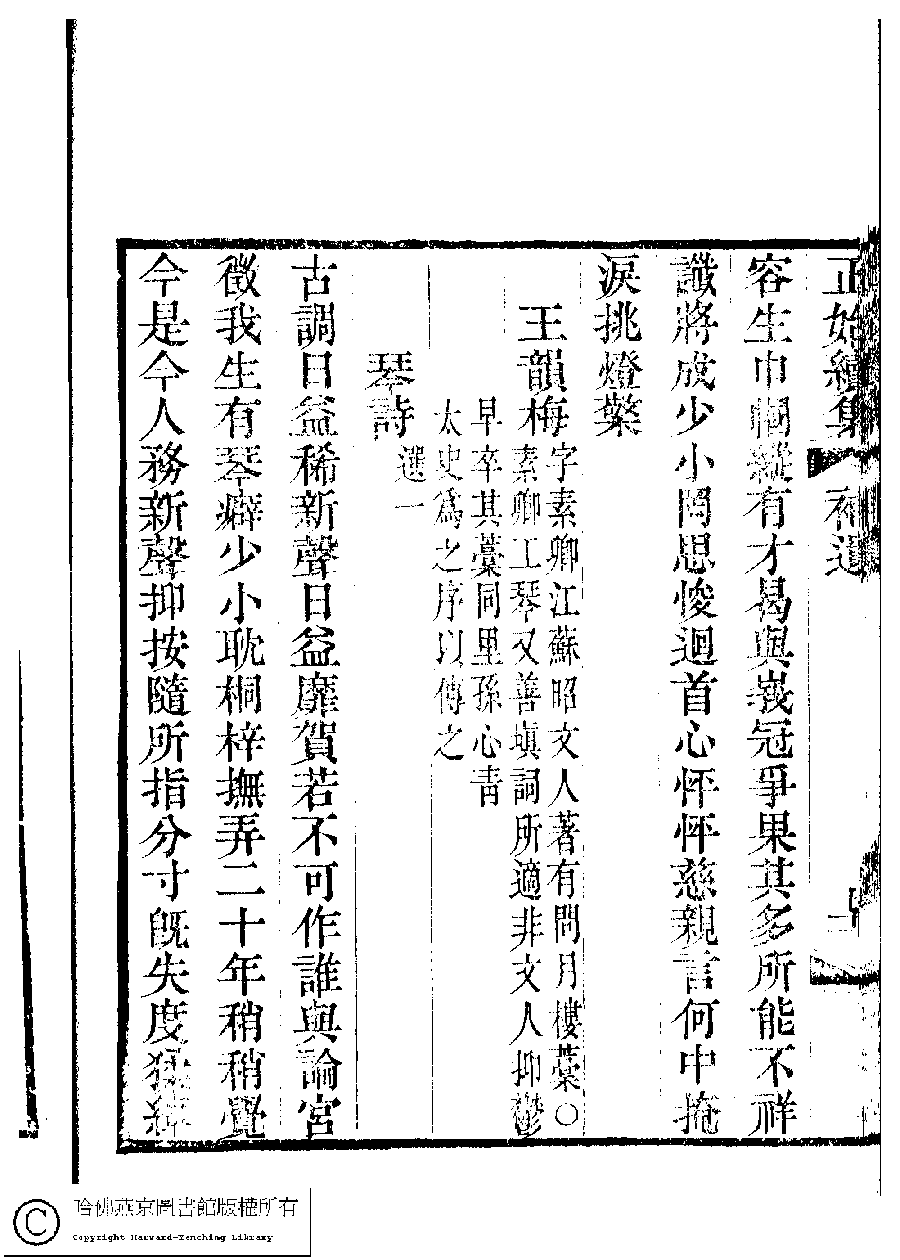 正始續集 補遺 十
容生巾幗縱有才曷與峩冠爭果其多所能不祥
讖將成少小罔思悛迴首心怦怦慈親言何中掩
淚挑燈檠
王韻梅 字素卿江蘇昭文人著有問月樓藁○
素卿工琴又善塡詞所適非文人抑鬱
早卒其藁同里孫心靑
太史爲之序以傳之
琴詩 選一
古調日益稀新聲日益靡賀若不可作誰與論宮
徵我生有琴癖少小耽桐梓撫弄二十年稍稍覺
今是今人務新聲抑按隨所指分寸旣失度
哈佛燕京圖書館版權所有
Copyright Harvard-Yenching Library